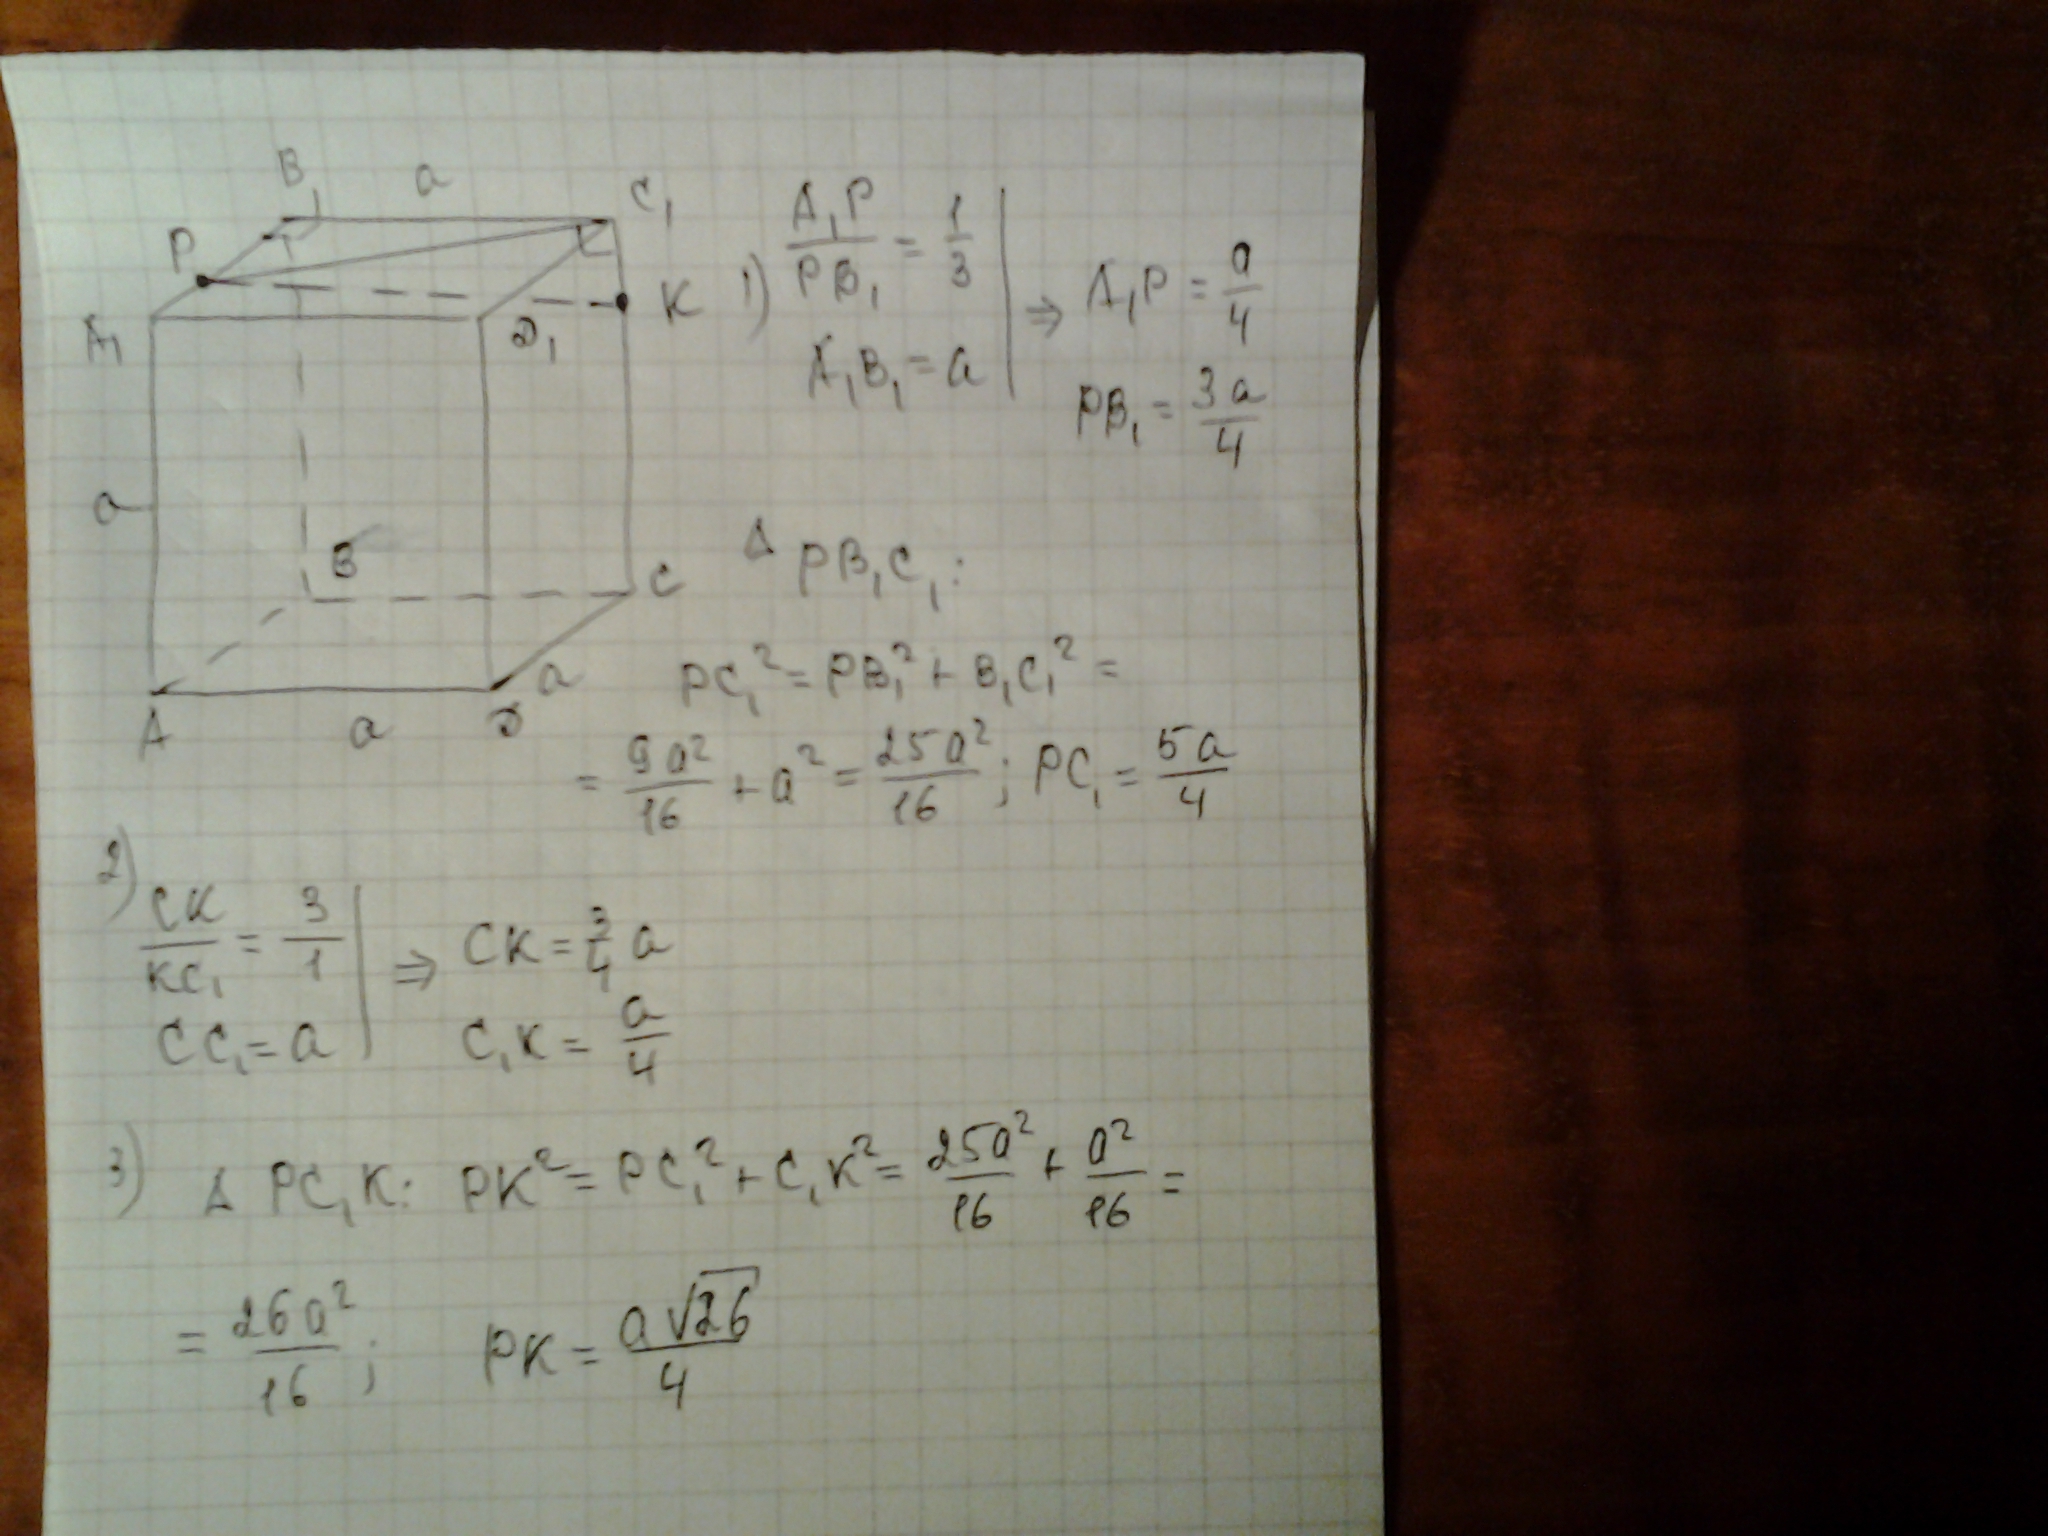 B₁ a C₁
P
K
A₁ D₁
a
B
C
a
A a D
1) A₁P/PB₁ = 1/3
A₁B₁ = a
⇒ A₁P = a/4
PB₁ = 3a/4
Δ PB₁C₁:
PC₁² = PB₁² + B₁C₁² =
= 9a²/16 + a² = 25a²/16; PC₁ = 5a/4
2) CK/KC₁ = 3/1
CC₁ = a
⇒ CK = 3/4 a
C₁K = a/4
3) Δ PC₁K: PK² = PC₁² + C₁K² = 25a²/16 + a²/16 =
= 26a²/16; PK = a√26/4